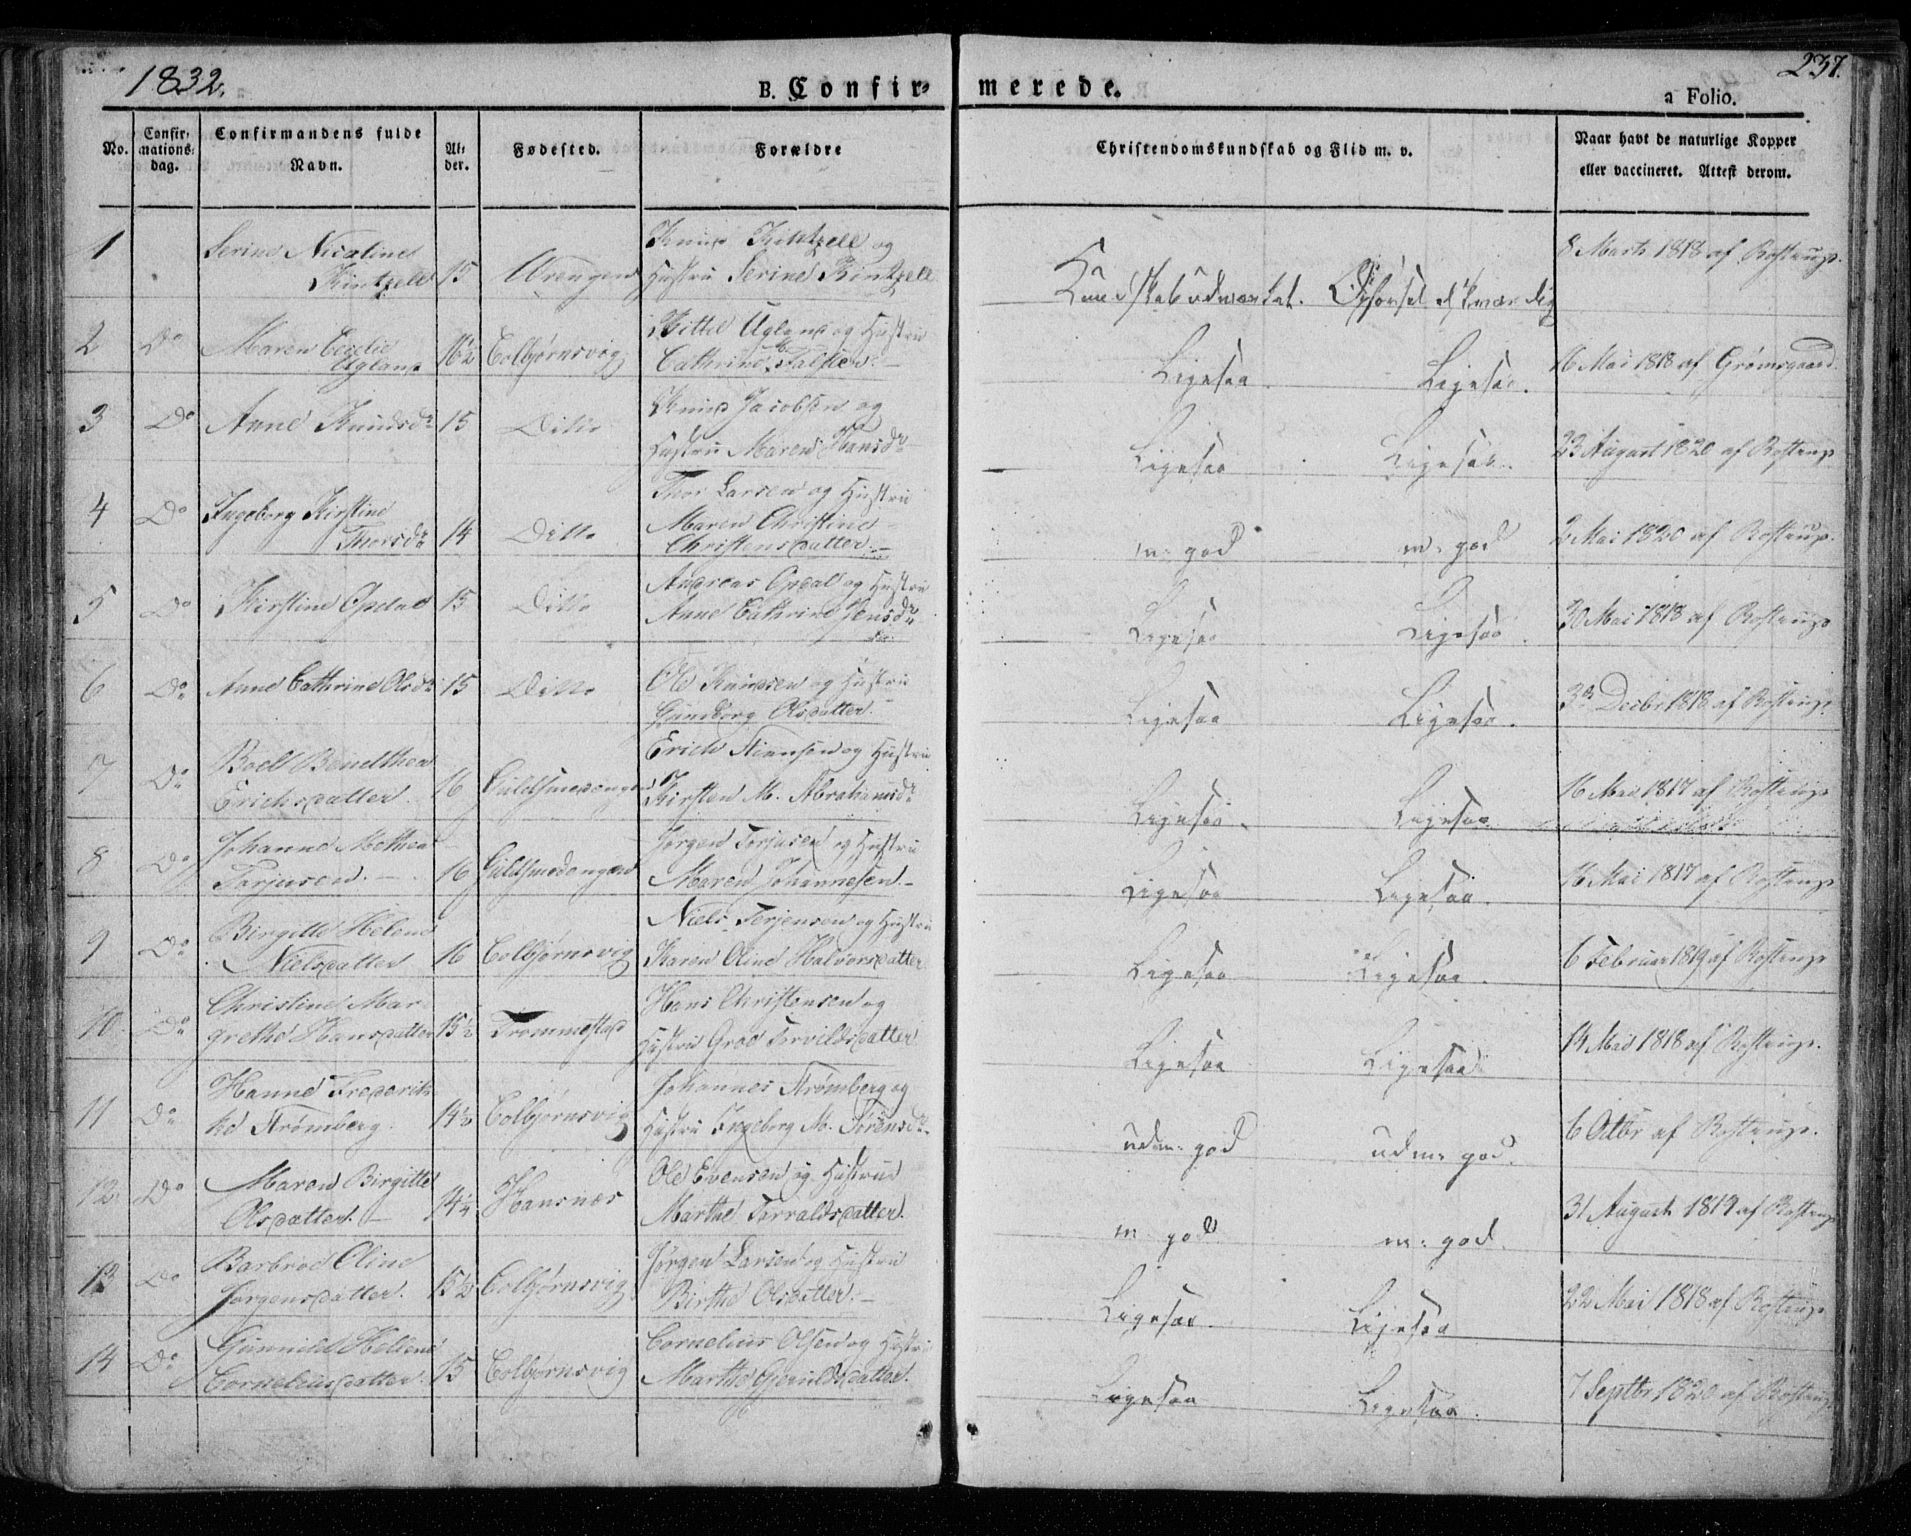 1832.
B. Confir-
merede.
237.
a Folio.
No.
Confir-
mations-
dag.
Confirmandens fulde
Navn.
Al-
der.
Fødested.
Forældre
Christendomskundskab og Flid m. v.
Naar havt de naturlige Kopper
eller vaccineret. Attest derom.
1
Serine Nicoline
Kintzell
15
Vrengen
Knud Kintzell og
Hustru Serine Kintzell
Kundskab udmærket. Opførsel elskværdig
8 Marts 1818 af Rostrup.
2
Do
Maren Cecilie
Ugland
16½
Colbjørnsvig
Kittel Ugland og Hustru
Cathrine Falsen. –
Ligesaa.
Ligesaa.
16 Mai 1818 af Grømsgaard.
3
Do
Anne Knudsdr
15
Ditto
Knud Jacobsen og
Hustru Maren Hansdr
Ligesaa
Ligesaa.
23 August 1820 af Rostrup
4
Do
Ingeborg Kirstine
Thorsdr
14
Ditto
Thor Larsen og Hustru
Maren Christine
Christensdatter. –
m: god
m: god
2 Mai 1820 af Rostrup.
5
Do
Kirstine Opdal
15
Ditto
Andreas Opdal og Hustru
Anne Cathrine Jensdr
Ligesaa
Ligesaa.
30 Mai 1818 af Rostrup
6
Do
Anne Cathrine Olsdr
15
Ditto
Ole Knudsen og Hustru
Gunborg Olsdatter. –
Ligesaa
Ligesaa.
Decbr 1818 af Rostrup.
7
Do
Boel Benedthea
Erichsdatter.
16
Guldsmedengen
Erich Steensen og Hustru
Kirsten M. Abrahamsdr
Ligesaa.
Ligesaa.
16 Mai 1817 af Rostrup
8
Do
Johanne Methea
Torjusen. –
16
Guldsmedengen
Jørgen Torjusen og Hustru
Maren Johannesen. –
Ligesaa
Ligesaa.
16 Mai 1817 af Rostrup
9
Do
Birgitte Helene
Nielsdatter
16
Colbjørnsvig
Niels Terjensen og Hustru
Karen Oline Halvorsdatter
Ligesaa
Ligesaa.
6 Februar 1819 af Rostrup
10
Do
Christine Mar-
grethe Hansdatter
15½
Trommestad
Hans Christensen og
Hustru Groe Torvildsdatter
Ligesaa
Ligesaa
14 Mai 1818 af Rostrup.
11
Do
Hanne Frederik-
ke Strømberg.
14½
Colbjørnsvig
Johannes Strømberg og
Hustru Ingeborg M. Sørensdr.
udm: god
udm: god.
6 Octbr af Rostrup.
12
Do
Maren Birgitte
Olsdatter. –
14¼
Hansnæs
Ole Evensen og Hustrue
Marthe Torraldsdatter.
m: god
m: god.
31 August 1819 af Rostrup
13
Do
Barbroe Oline
Jørgensdatter.
15½
Colbjørnsvig
Jørgen Larsen og Hustru
Birthe Olsdatter. –
Ligesaa.
Ligesaa
22 Mai 1818 af Rostrup
14
Do
Gunnild Hellene
Corneliusdatter.
15
Colbjørnsvig
Cornelius Olsen og Hustru
Marthe Gjeruldsdatter.
Ligesaa
Ligesaa.
7 Septbr 1820 af Rostrup